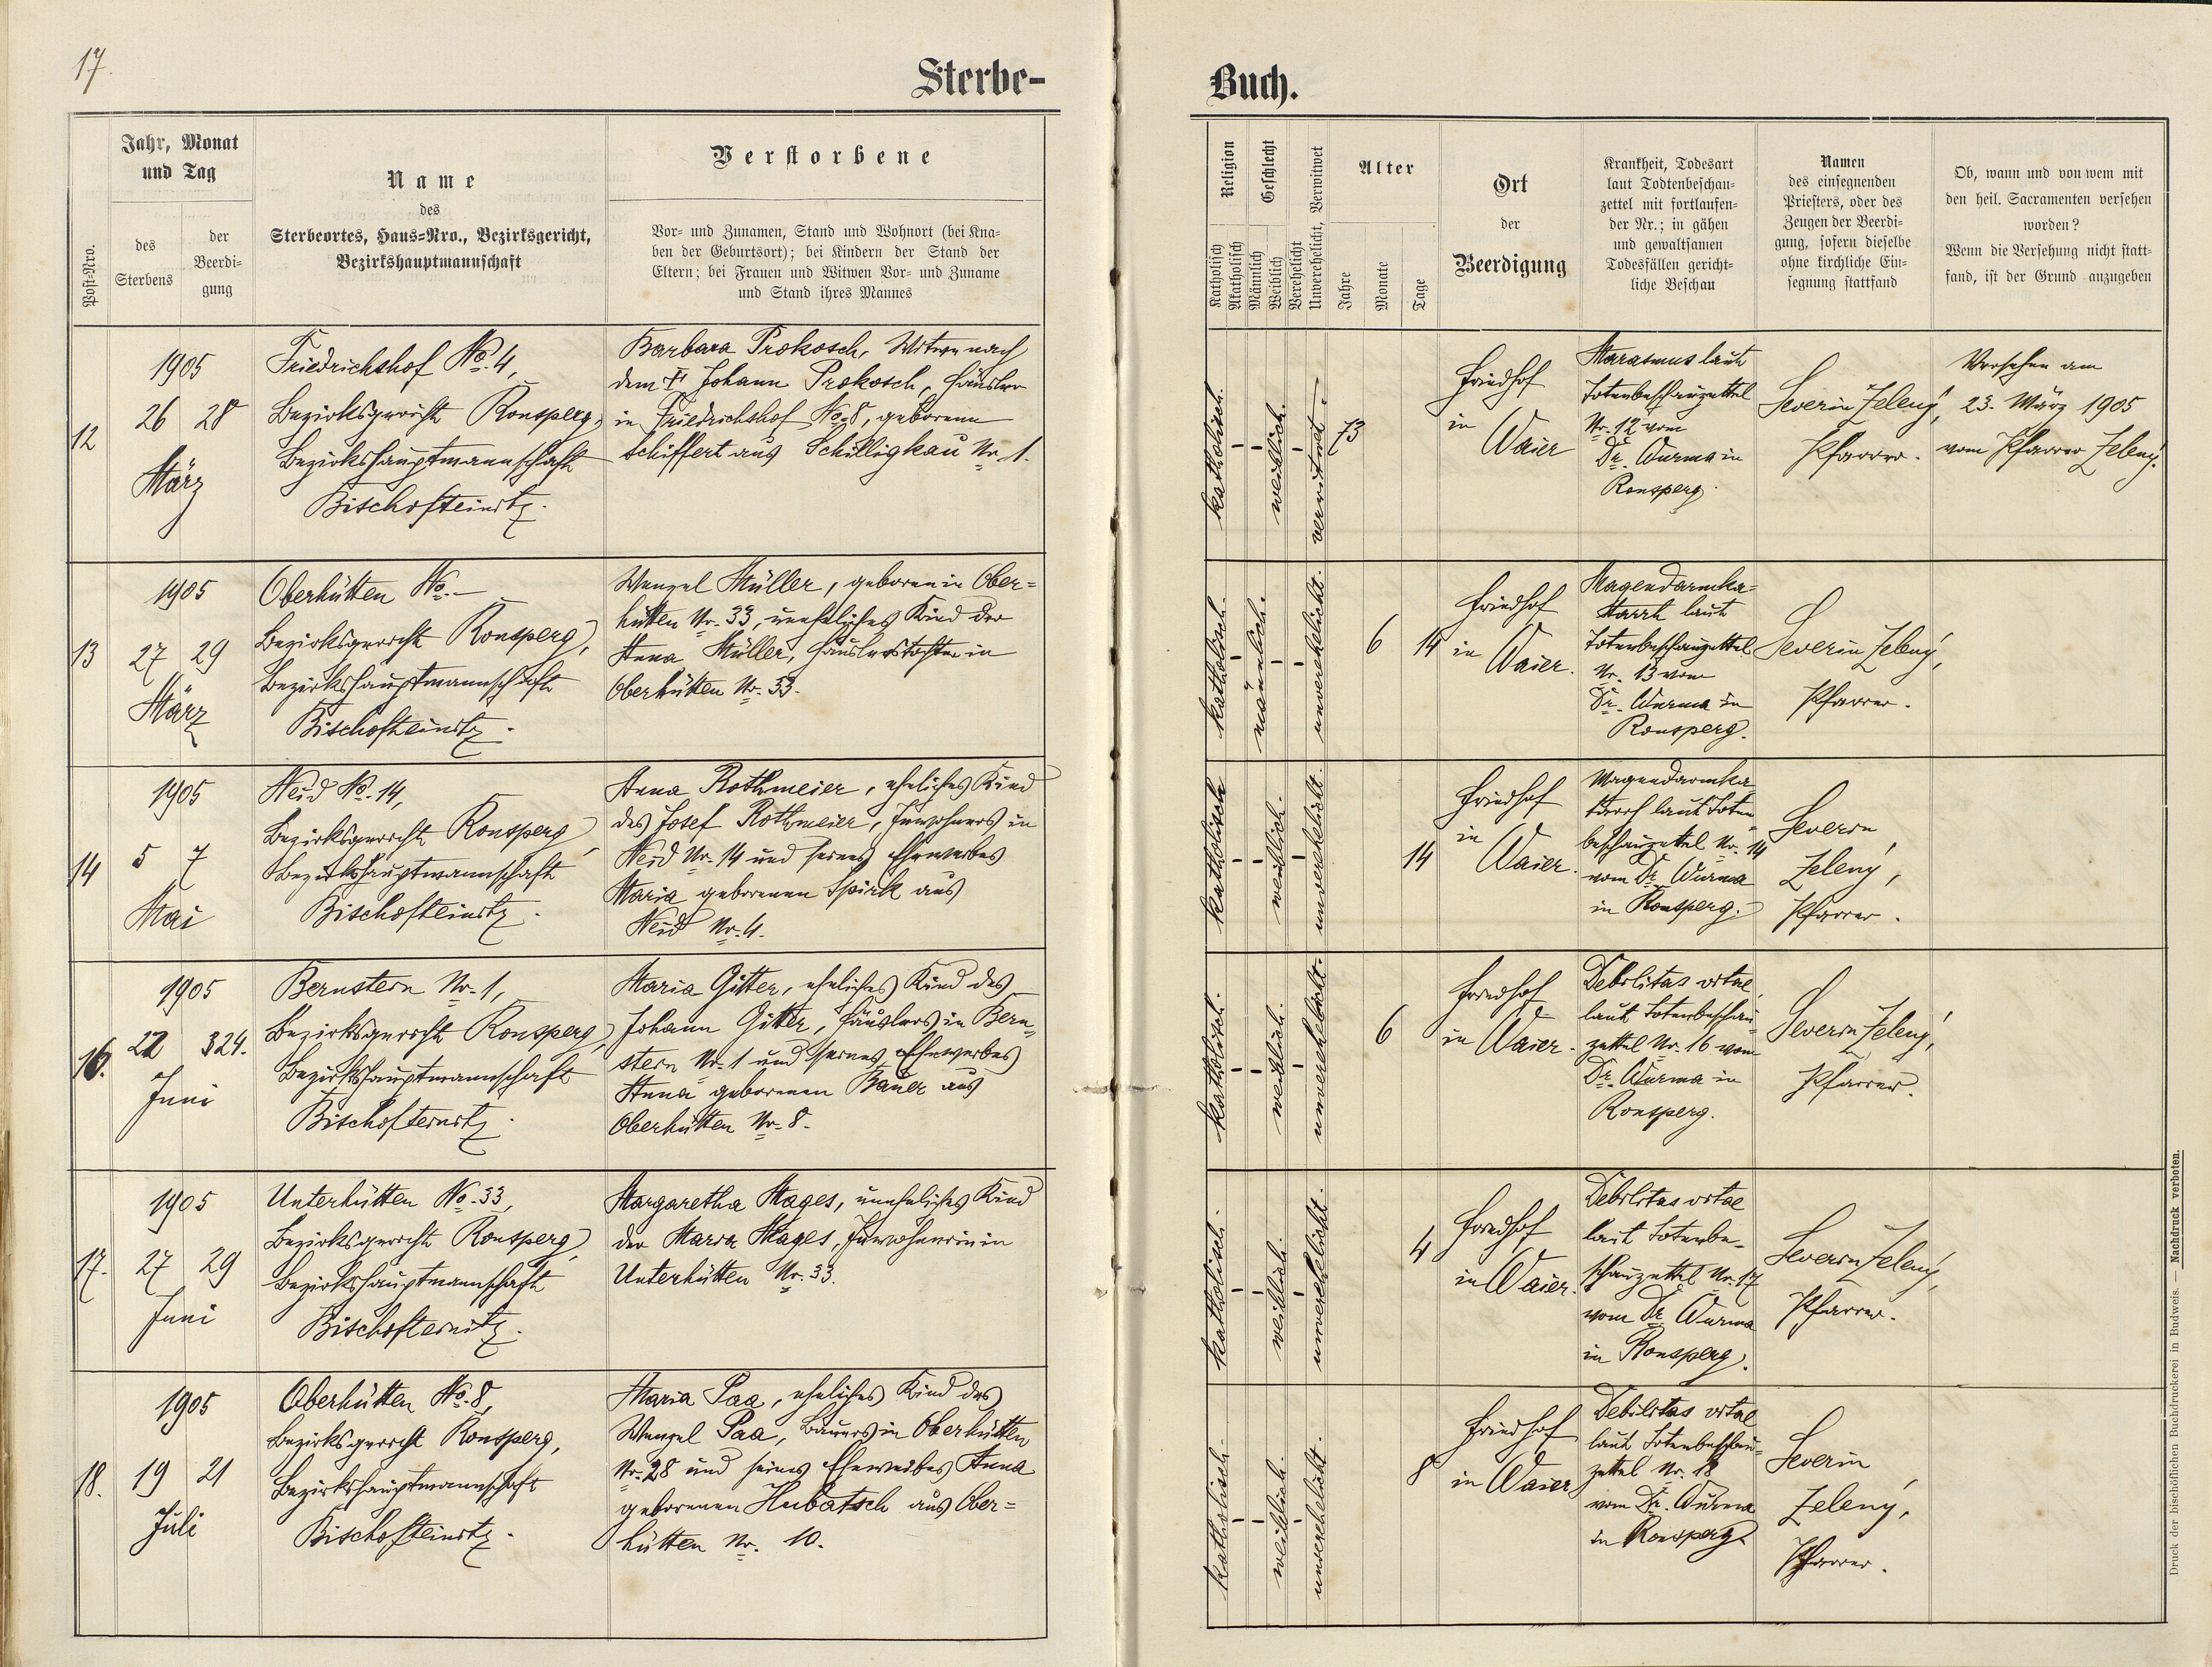 17.
Sterbe-
Buch.
Post-Nro.
Jahr, Monat
und Tag
des
Sterbens
der
Beerdi-
gung
Name
des
Sterbeortes, Haus-Nro., Bezirksgericht,
Bezirkshauptmannschaft
Verstorbene
Vor- und Zunamen, Stand und Wohnort (bei Kna-
ben der Geburtsort); bei Kindern der Stand der
Eltern; bei Frauen und Witwen Vor- und Zuname
und Stand ihres Mannes
Religion
Katholisch
Akatholisch
Geschlecht
Männlich
Weiblich
Verehelicht
Unverehelicht, Verwitwet
Alter
Jahre
Monate
Tage
Ort
der
Beerdigung
Krankheit, Todesart
laut Todtenbeschau-
zettel mit fortlaufen-
der Nr.; in gähen
und gewaltsamen
Todesfällen gericht-
liche Beschau
Namen
des einsegnenden
Priesters, oder des
Zeugen der Beerdi-
gung, sofern dieselbe
ohne kirchliche Ein-
segnung stattfand
Ob, wann und von wem mit
den heil. Sacramenten versehen
worden?
Wenn die Versehung nicht statt-
fand, ist der Grund anzugeben
12
1905
26 28
März
Friedrichshof No. 4,
Bezirksgericht Ronsperg,
Bezirkshauptmannschaft
Bischofteinitz.
Barbara Prokosch, Witwe nach
dem † Johann Prokosch, Häusler
in Friedrichshof No. 8, geborene
Schiffert aus Schilligkau Nr. 1.
katholisch.
weiblich.
verwitwet.
73
Friedhof
in
Waier
Marasmus laut
Totenbeschauzettel
Nr. 12 vom
Dr. Wurma in
Ronsperg.
Severin Zelený,
Pfarrer.
Versehen am
23. März 1905
vom Pfarrer Zelený.
13
1905
27 29
März
Oberhütten No. —
Bezirksgericht Ronsperg,
Bezirkshauptmannschaft
Bischofteinitz.
Wenzel Müller, geboren in Ober=
hütten Nr. 33, uneheliches Kind der
Anna Müller, Häuslerstochter in
Oberhütten Nr. 33.
katholisch.
männlich.
unverehelicht.
6 14
Friedhof
in
Waier.
Magendarmka=
tarrh laut
Totenbeschauzettel
Nr. 13 vom
Dr. Wurma in
Ronsperg.
Severin Zelený,
Pfarrer.
14
1905
5 7
Mai
Neid No. 14,
Bezirksgericht Ronsperg,
Bezirkshauptmannschaft
Bischofteinitz.
Anna Rothmeier, eheliches Kind
des Josef Rothmeier, Inwohners in
Neid Nr. 14 und seines Eheweibes
Maria geborenen Spirk aus
Neid Nr. 4.
katholisch
weiblich.
unverehelicht.
14
Friedhof
in
Waier.
Magendarmka
tarrh laut Toten=
beschauzettel Nr. 14
vom Dr. Wurma
in Ronsperg.
Severin
Zelený,
Pfarrer.
16.
1905
22 24.
Juni
Bernstein Nr. 1,
Bezirksgericht Ronsperg,
Bezirkshauptmannschaft
Bischofteinitz.
Maria Gitter, eheliches Kind des
Johann Gitter, Häuslers in Bern=
stein Nr. 1 und seines Eheweibes
Anna geborenen Bauer aus
Oberhütten Nr. 8.
katholisch.
weiblich.
unverehelicht.
6
Friedhof
in Waier.
Debilitas vitae
laut Totenbeschau=
zettel Nr. 16 vom
Dr. Wurma in
Ronsperg.
Severin Zelený,
Pfarrer.
17.
1905
27 29
Juni
Unterhütten No. 33,
Bezirksgericht Ronsperg,
Bezirkshauptmannschaft
Bischofteinitz.
Margaretha Mages, uneheliches Kind
der Maria Mages, Inwohnerin in
Unterhütten Nr. 33.
katholisch.
weiblich.
unverehelicht.
4
Friedhof
in Waier.
Debilitas vitae
laut Totenbe-
schauzettel Nr. 17
vom Dr. Wurma
in Ronsperg.
Severin Zelený,
Pfarrer.
18.
1905
19 21
Juli
Oberhütten No. 8,
Bezirksgericht Ronsperg,
Bezirkshauptmannschaft
Bischofteinitz.
Maria Paa, eheliches Kind des
Wenzel Paa, Bauers in Oberhütten
Nr. 28 und seines Eheweibes Anna
geborenen Hubatsch aus Ober=
hütten Nr. 10.
katholisch
weiblich.
unverehelicht.
8
Friedhof
in Waier
Debilitas vitae
laut Totenbeschau=
zettel Nr. 18
vom Dr. Wurma
in Ronsperg.
Severin
Zelený,
Pfarrer.
Druck der bischöflichen Buchdruckerei in Budweis. — Nachdruck verboten.